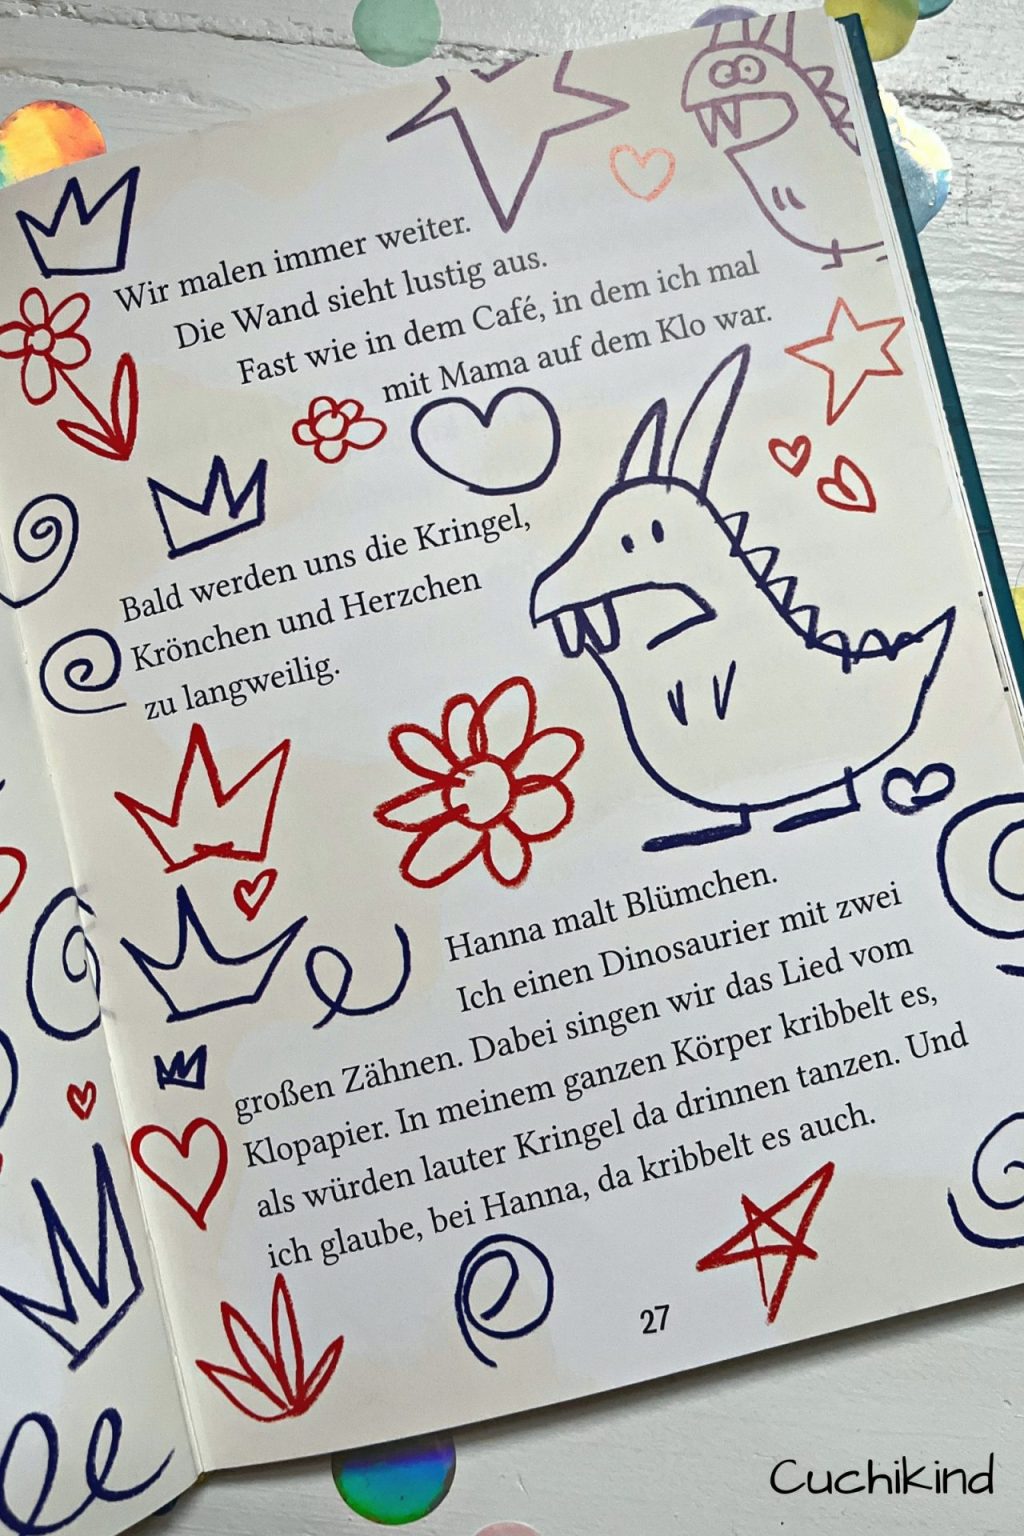 Wir malen immer weiter.
Die Wand sieht lustig aus.
Fast wie in dem Café, in dem ich mal
mit Mama auf dem Klo war.
Bald werden uns die Kringel,
Krönchen und Herzchen
zu langweilig.
Hanna malt Blümchen.
Ich einen Dinosaurier mit zwei
großen Zähnen. Dabei singen wir das Lied vom
Klopapier. In meinem ganzen Körper kribbelt es,
als würden lauter Kringel da drinnen tanzen. Und
ich glaube, bei Hanna, da kribbelt es auch.
27
Cuchikind